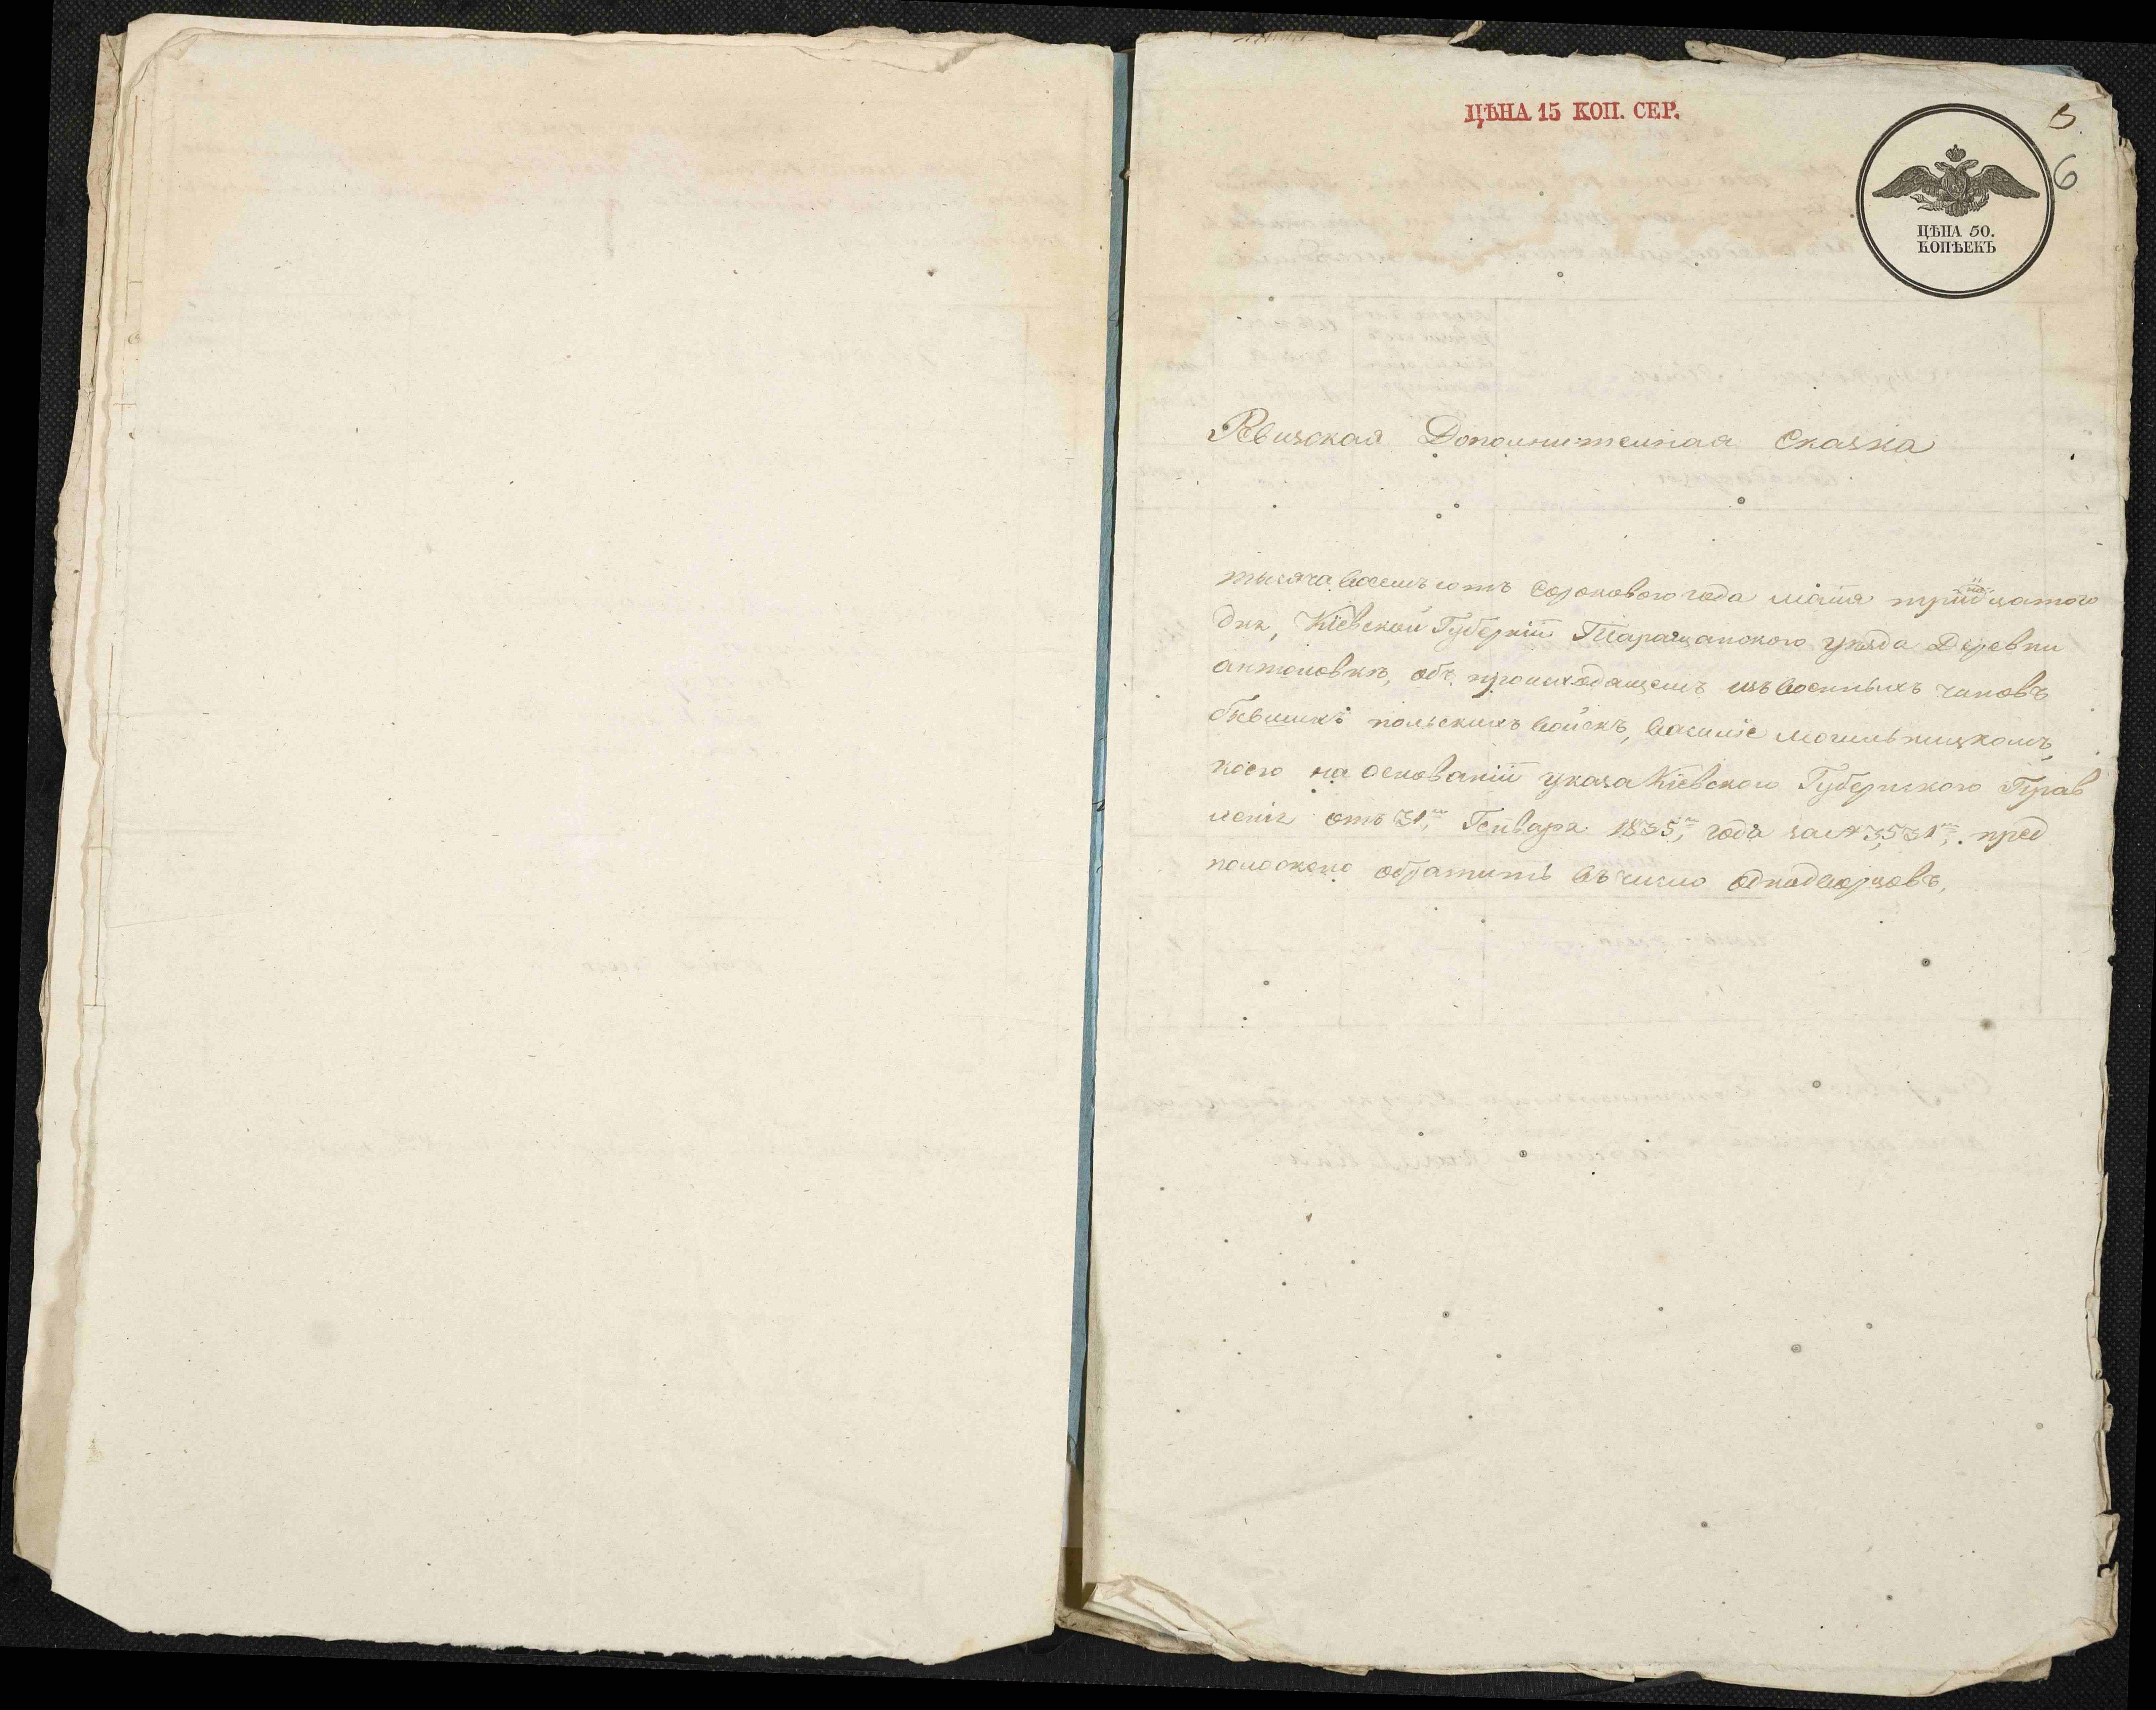 ЦѢНА 15 КОП. СЕР.
5
6
ЦѢНА 50.
КОПѢЕКЪ
Ревизская Дополнителная Сказка
тысяча восемъ сотъ Сороковаго года маія тридцатого
дня, Кіевской Губерніи Таращанского уезда Деревни
антоновки, объ происходящемъ изъ военныхъ чиновъ
бывшихъ польскихъ войскъ, василіе могильницкомъ,
коего на основаніи указа Кіевского Губернского Прав
ленія отъ 31, Генваря 1835, года за № 3,531, пред
положено обратить въ число однодворцовъ,